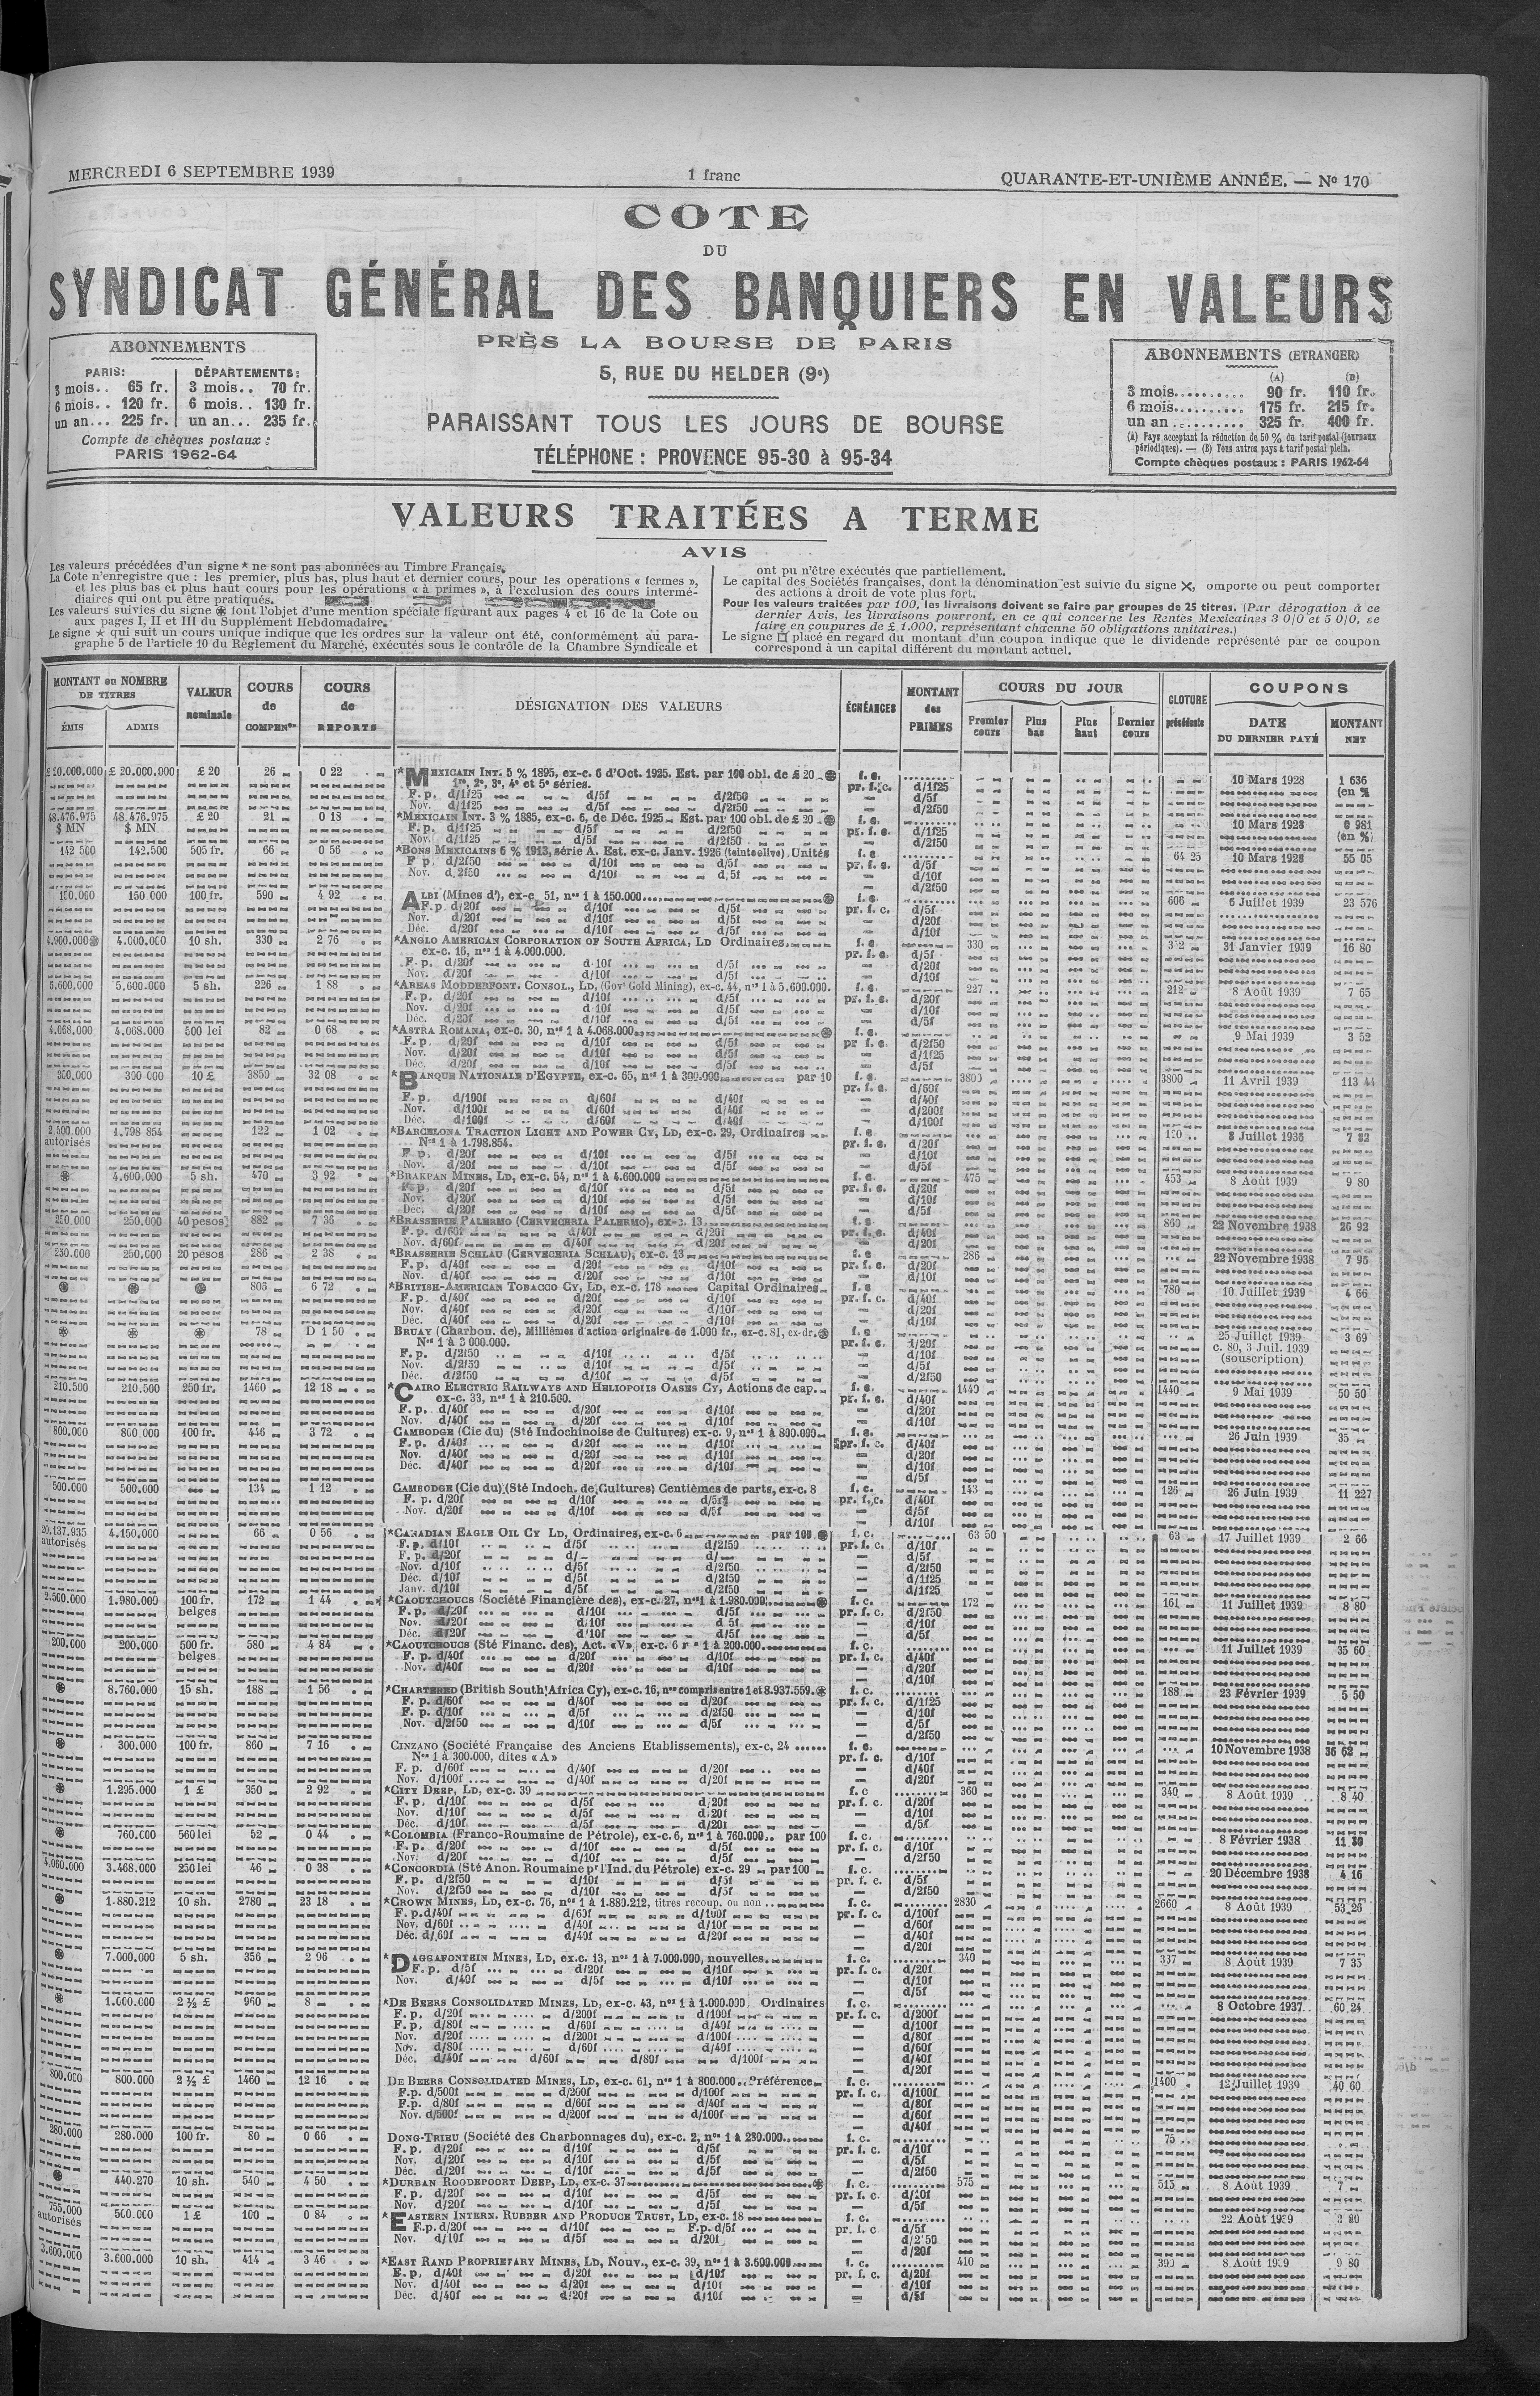 MERCREDI 6 SEPTEMBRE 1939
1 franc
QUARANTE-ET-UNIÈME ANNÉE. — No 170
COTE
DU
SYNDICAT GÉNÉRAL DES BANQUIERS EN VALEURS
PRÈS LA BOURSE DE PARIS
5, RUE DU HELDER (9e)
PARAISSANT TOUS LES JOURS DE BOURSE
TÉLÉPHONE : PROVENCE 95-30 à 95-34
ABONNEMENTS
PARIS: DÉPARTEMENTS:
3 mois.. 65 fr. 3 mois.. 70 fr.
6 mois.. 120 fr. 6 mois.. 130 fr.
un an... 225 fr. un an... 235 fr.
Compte de chèques postaux :
PARIS 1962-64
ABONNEMENTS (ETRANGER)
(A) (B)
3 mois.......... 90 fr. 110 fr.
6 mois.......... 175 fr. 215 fr.
un an .......... 325 fr. 400 fr.
(A) Pays acceptant la réduction de 50 % du tarif postal (journaux
périodiques). — (B) Tous autres pays à tarif postal plein.
Compte chèques postaux : PARIS 1962-64
VALEURS TRAITÉES A TERME
AVIS
Les valeurs précédées d'un signe * ne sont pas abonnées au Timbre Français.
La Cote n'enregistre que : les premier, plus bas, plus haut et dernier cours, pour les opérations « fermes »,
et les plus bas et plus haut cours pour les opérations « à primes », à l'exclusion des cours intermé-
diaires qui ont pu être pratiqués.
Les valeurs suivies du signe ⊛ font l'objet d'une mention spéciale figurant aux pages 4 et 16 de la Cote ou
aux pages I, II et III du Supplément Hebdomadaire.
Le signe ★ qui suit un cours unique indique que les ordres sur la valeur ont été, conformément au para-
graphe 5 de l'article 10 du Règlement du Marché, exécutés sous le contrôle de la Chambre Syndicale et
ont pu n'être exécutés que partiellement.
Le capital des Sociétés françaises, dont la dénomination est suivie du signe ✕, omporte ou peut comporter
des actions à droit de vote plus fort.
Pour les valeurs traitées par 100, les livraisons doivent se faire par groupes de 25 titres. (Par dérogation à ce
dernier Avis, les livraisons pourront, en ce qui concerne les Rentes Mexicaines 3 0/0 et 5 0/0, se
faire en coupures de £ 1.000, représentant chacune 50 obligations unitaires.)
Le signe □ placé en regard du montant d'un coupon indique que le dividende représenté par ce coupon
correspond à un capital différent du montant actuel.
MONTANT ou NOMBRE DE TITRES
ÉMIS ADMIS
VALEUR nominale
COURS de COMPENon
COURS de REPORTS
DÉSIGNATION DES VALEURS
ÉCHÉANCES
MONTANT des PRIMES
COURS DU JOUR
Premier cours Plus bas Plus haut Dernier cours
CLOTURE précédente
COUPONS
DATE DU DERNIER PAYÉ MONTANT NET
£ 20.000.000 £ 20.000.000 £ 20 26 0 22 *MEXICAIN INT. 5 % 1895, ex-c. 6 d'Oct. 1925. Est. par 100 obl. de £ 20 ⊛ f. c. 10 Mars 1928 1 636
1re, 2e, 3e, 4e et 5e séries. pr. f. c. d/1f25 (en %
F. p. d/1f25 d/5f d/2f50 d/5f
Nov. d/1f25 d/5f d/2f50 d/2f50
48.476.975 48.476.975 £ 20 21 0 18 *MEXICAIN INT. 3 % 1885, ex-c. 6, de Déc. 1925 Est. par 100 obl. de £ 20 ⊛ f. c. 10 Mars 1928 0 981
$ MN $ MN F. p. d/1f25 d/5f d/2f50 pr. f. c. d/1f25 (en %)
Nov. d/1f25 d/5f d/2f50 d/2f50
142 500 142.500 505 fr. 66 0 56 *BONS MEXICAINS 6 % 1913, série A. Est. ex-c. Janv. 1926 (teinte olive). Unités f. c. 64 25 10 Mars 1928 55 05
F p. d/2f50 d/10f d/5f pr. f. c. d/5f
Nov. d/2f50 d/10f d/5f d/10f
d/2f50
150.000 150 000 100 fr. 590 4 92 ALBI (Mines d'), ex-c. 51, nos 1 à 150.000 ⊛ f. c. 606 6 Juillet 1939 23 576
F. p. d/20f d/10f d/5f pr. f. c. d/5f
Nov. d/20f d/10f d/5f d/20f
Déc. d/20f d/10f d/5f d/10f
4.900.000 ⊛ 4.000.000 10 sh. 330 2 76 *ANGLO AMERICAN CORPORATION OF SOUTH AFRICA, LD Ordinaires f. c. 330 31 Janvier 1939 16 80
ex-c. 16, nos 1 à 4.000.000. pr. f. c. d/5f
F. p. d/20f d/10f d/5f d/20f
Nov. d/20f d/10f d/5f d/10f
5.600.000 5.600.000 5 sh. 226 1 88 *AREAS MODDERFONT. CONSOL., LD, (Govt Gold Mining), ex-c. 44, nos 1 à 5.600.000. f. c. 227 212 8 Août 1939 7 65
F. p. d/20f d/10f d/5f pr. f. c. d/20f
Nov. d/20f d/10f d/5f d/10f
Déc. d/20f d/10f d/5f d/5f
4.068.000 4.068.000 500 lei 82 0 68 *ASTRA ROMANA, ex-c. 30, nos 1 à 4.068.000 ⊛ f. c. 9 Mai 1939 3 52
F. p. d/20f d/10f d/5f pr f. c. d/2f50
Nov. d/20f d/10f d/5f d/1f25
Déc. d/20f d/10f d/5f d/5f
300,000 300 000 10 £ 3850 32 08 *BANQUE NATIONALE D'EGYPTE, ex-c. 65, nos 1 à 300.000 par 10 f. c. 3800 3800 11 Avril 1939 113 44
pr. f. c. d/60f
F. p. d/100f d/60f d/40f d/40f
Nov. d/100f d/60f d/40f d/200f
Déc. d/100f d/60f d/40f d/100f
2.500.000 1.798 854 122 1 02 *BARCELONA TRACTION LIGHT AND POWER CY, LD, ex-c. 29, Ordinaires f. c. 8 Juillet 1936
autorisés Nos 1 à 1.798.854. pr. f. c. d/20f
F p. d/20f d/10f d/5f d/10f
Nov. d/20f d/10f d/5f d/5f
⊛ 4.600.000 5 sh. 470 3 92 *BRAKPAN MINES, LD, ex-c. 54, nos 1 à 4.600.000 f. c. 475 453 8 Août 1939 9 80
F. p. d/20f d/10f d/5f pr. f. c. d/20f
Nov. d/20f d/10f d/5f d/10f
Déc. d/20f d/10f d/5f d/5f
250.000 250.000 40 pesos 882 7 36 *BRASSERIE PALERMO (CERVECERIA PALERMO), ex-c. 13 f. c. 860 22 Novembre 1938 26 92
F. p. d/60f d/40f d/20f pr. f. c. d/40f
Nov. d/60f d/40f d/20f d/20f
250.000 250.000 20 pesos 286 2 38 *BRASSERIE SCHLAU (CERVECERIA SCHLAU), ex-c. 13 f. c 286 22 Novembre 1938 7 95
F. p. d/40f d/20f d/10f pr. f. c. d/20f
Nov. d/40f d/20f d/10f d/10f
⊛ ⊛ ⊛ 806 6 72 *BRITISH-AMERICAN TOBACCO CY, LD, ex-c. 178 Capital Ordinaires f. c 780 10 Juillet 1939 4 66
F. p. d/40f d/20f d/10f pr. f. c. d/40f
Nov. d/40f d/20f d/10f d/20f
Déc. d/40f d/20f d/10f d/10f
⊛ ⊛ ⊛ 78 D 1 50 BRUAY (Charbon. de), Millièmes d'action originaire de 1.000 fr., ex-c. 81, ex-dr. ⊛ f. c 25 Juillet 1939 3 69
Nos 1 à 3 000.000. pr. f. c. d/20f c. 80, 3 Juil. 1939
F. p. d/2f50 d/10f d/5f d/10f (souscription)
Nov. d/2f50 d/10f d/5f d/5f
Déc. d/2f50 d/10f d/5f d/2f50
210.500 210.500 250 fr. 1460 12 18 *CAIRO ELECTRIC RAILWAYS AND HELIOPOLIS OASES CY, Actions de cap. f. c. 1440 1440 9 Mai 1939 50 50
ex-c. 33, nos 1 à 210.500. pr. f. c. d/40f
F. p. d/40f d/20f d/10f d/20f
Nov. d/40f d/20f d/10f d/10f
800.000 800.000 100 fr. 446 3 72 CAMBODGE (Cie du) (Sté Indochinoise de Cultures) ex-c. 9, nos 1 à 800.000 f. c. 26 Juin 1939 35
F. p. d/40f d/20f d/10f pr. f. c. d/40f
Nov. d/40f d/20f d/10f d/20f
Déc. d/40f d/20f d/10f d/10f
d/5f
500.000 500.000 134 1 12 CAMBODGE (Cie du) (Sté Indoch. de Cultures) Centièmes de parts, ex-c. 8 f. c. 143 126 26 Juin 1939 11 227
F. p. d/20f d/10f d/5f pr. f. c. d/40f
Nov. d/20f d/10f d/5f d/20f
d/10f
20.137.935 4.150.000 66 0 56 *CANADIAN EAGLE OIL CY LD, Ordinaires, ex-c. 6 par 100 ⊛ f. c. 63 50 63 17 Juillet 1939 2 66
autorisés F. p. d/10f d/5f d/2f50 pr. f. c. d/10f
F. p. d/20f d/ d/ d/5f
Nov. d/10f d/5f d/2f50 d/2f50
Déc. d/10f d/5f d/2f50 d/1f25
Janv. d/10f d/5f d/2f50 d/1f25
2.500.000 1.980.000 100 fr. 172 1 44 *CAOUTCHOUCS (Société Financière des), ex-c. 27, nos 1 à 1.980.000 ⊛ f. c. 172 161 11 Juillet 1939 8 80
belges F. p. d/20f d/10f d/5f pr. f. c. d/2f50
Nov. d/20f d/10f d/5f d/10f
Déc. d/20f d/10f d/5f d/5f
200.000 200.000 500 fr. 580 4 84 *CAOUTCHOUCS (Sté Financ. des), Act. «V», ex-c. 6 nos 1 à 200.000 f. c. 11 Juillet 1939 35 60
belges F. p. d/40f d/20f d/10f pr. f. c. d/40f
Nov. d/40f d/20f d/10f d/20f
d/10f
⊛ 8.760.000 15 sh. 188 1 56 *CHARTERED (British South Africa Cy), ex-c. 16, nos compris entre 1 et 8.937.559 ⊛ f. c. 188 23 Février 1939 5 50
F. p. d/60f d/40f d/20f pr. f. c. d/1f25
F. p. d/10f d/5f d/2f50 d/10f
Nov. d/2f50 d/10f d/5f d/5f
d/2f50
⊛ 300.000 100 fr. 860 7 16 CINZANO (Société Française des Anciens Etablissements), ex-c. 24 f. c. 10 Novembre 1938 36 62
Nos 1 à 300.000, dites «A» pr. f. c. d/10f
F. p. d/60f d/40f d/20f d/40f
Nov. d/100f d/40f d/20f d/20f
⊛ 1.295.000 1 £ 350 2 92 *CITY DEEP, LD, ex-c. 39 f. c 360 340 8 Août 1939 8 40
F. p. d/10f d/5f d/20f pr. f. c. d/20f
Nov. d/10f d/5f d/20f d/10f
Déc. d/10f d/5f d/20f d/5f
⊛ 760.000 560 lei 52 0 44 *COLOMBIA (Franco-Roumaine de Pétrole), ex-c. 6, nos 1 à 760.000 par 100 f. c. 8 Février 1938 11 30
F. p. d/20f d/10f d/5f pr. f. c. d/10f
Nov. d/20f d/10f d/5f d/2f50
4.060.000 3.468.000 250 lei 46 0 38 *CONCORDIA (Sté Anon. Roumaine pr l'Ind. du Pétrole) ex-c. 29 par 100 f. c. 20 Décembre 1938 4 16
F. p. d/2f50 d/10f d/5f pr. f. c. d/5f
Nov. d/2f50 d/10f d/5f d/2f50
⊛ 1.880.212 10 sh. 2780 23 18 *CROWN MINES, LD, ex-c. 76, nos 1 à 1.880.212, titres recoup. ou non f. c. 2830 2660 8 Août 1939 53 26
F. p. d/40f d/60f d/100f pr. f. c. d/100f
Nov. d/60f d/40f d/10f d/60f
Déc. d/60f d/40f d/20f d/40f
d/20f
⊛ 7.000.000 5 sh. 356 2 96 *DAGGAFONTEIN MINES, LD, ex-c. 13, nos 1 à 7.000.000, nouvelles f. c. 340 337 8 Août 1939 7 35
F. p. d/5f d/20f d/10f pr. f. c. d/20f
Nov. d/40f d/5f d/10f d/10f
d/5f
⊛ 1.000.000 2 ½ £ 960 8 *DE BEERS CONSOLIDATED MINES, LD, ex-c. 43, nos 1 à 1.000.000 Ordinaires f. c. 8 Octobre 1937 60 24
F. p. d/20f d/200f d/100f pr. f. c. d/200f
F. p. d/80f d/60f d/40f d/100f
Nov. d/20f d/200f d/100f d/80f
Nov. d/80f d/60f d/40f d/60f
Déc. d/40f d/60f d/80f d/100f d/40f
d/20f
800.000 800.000 2 ½ £ 1460 12 16 DE BEERS CONSOLIDATED MINES, LD, ex-c. 61, nos 1 à 800.000 Préférence f. c. 1400 12 Juillet 1939 40 60
F.p. d/500f d/200f d/100f pr. f. c. d/100f
F.p. d/80f d/60f d/40f d/80f
Nov. d/500f d/200f d/100f d/60f
d/40f
280.000 280.000 100 fr. 80 0 66 DONG-TRIEU (Société des Charbonnages du), ex-c. 2, nos 1 à 280.000 f. c. 75
F. p. d/20f d/10f d/5f pr. f. c. d/10f
Nov. d/20f d/10f d/5f d/5f
Déc. d/20f d/10f d/5f d/2f50
⊛ 440.270 10 sh. 540 4 50 *DURBAN ROODEPOORT DEEP, LD, ex-c. 37 ⊛ f. c. 575 515 8 Août 1939 7
F. p. d/20f d/10f d/5f pr. f. c. d/10f
Nov. d/20f d/10f d/5f d/5f
755.000 500.000 1 £ 100 0 84 *EASTERN INTERN. RUBBER AND PRODUCE TRUST, LD, ex-c. 18 f. c. 22 Août 1939
autorisés F.p. d/20f d/10f F.p. d/5f pr. f. c d/5f
Nov. d/10f d/5f d/20f d/2f50
d/20f
3.600.000 3.600.000 10 sh. 414 3 46 *EAST RAND PROPRIETARY MINES, LD, Nouv., ex-c. 39, nos 1 à 3.600.000 f. c. 410 8 Août 1939 9 80
F. p. d/40f d/20f d/10f pr. f. c. d/20f
Nov. d/40f d/20f d/10f d/10f
Déc. d/40f d/20f d/10f d/5f